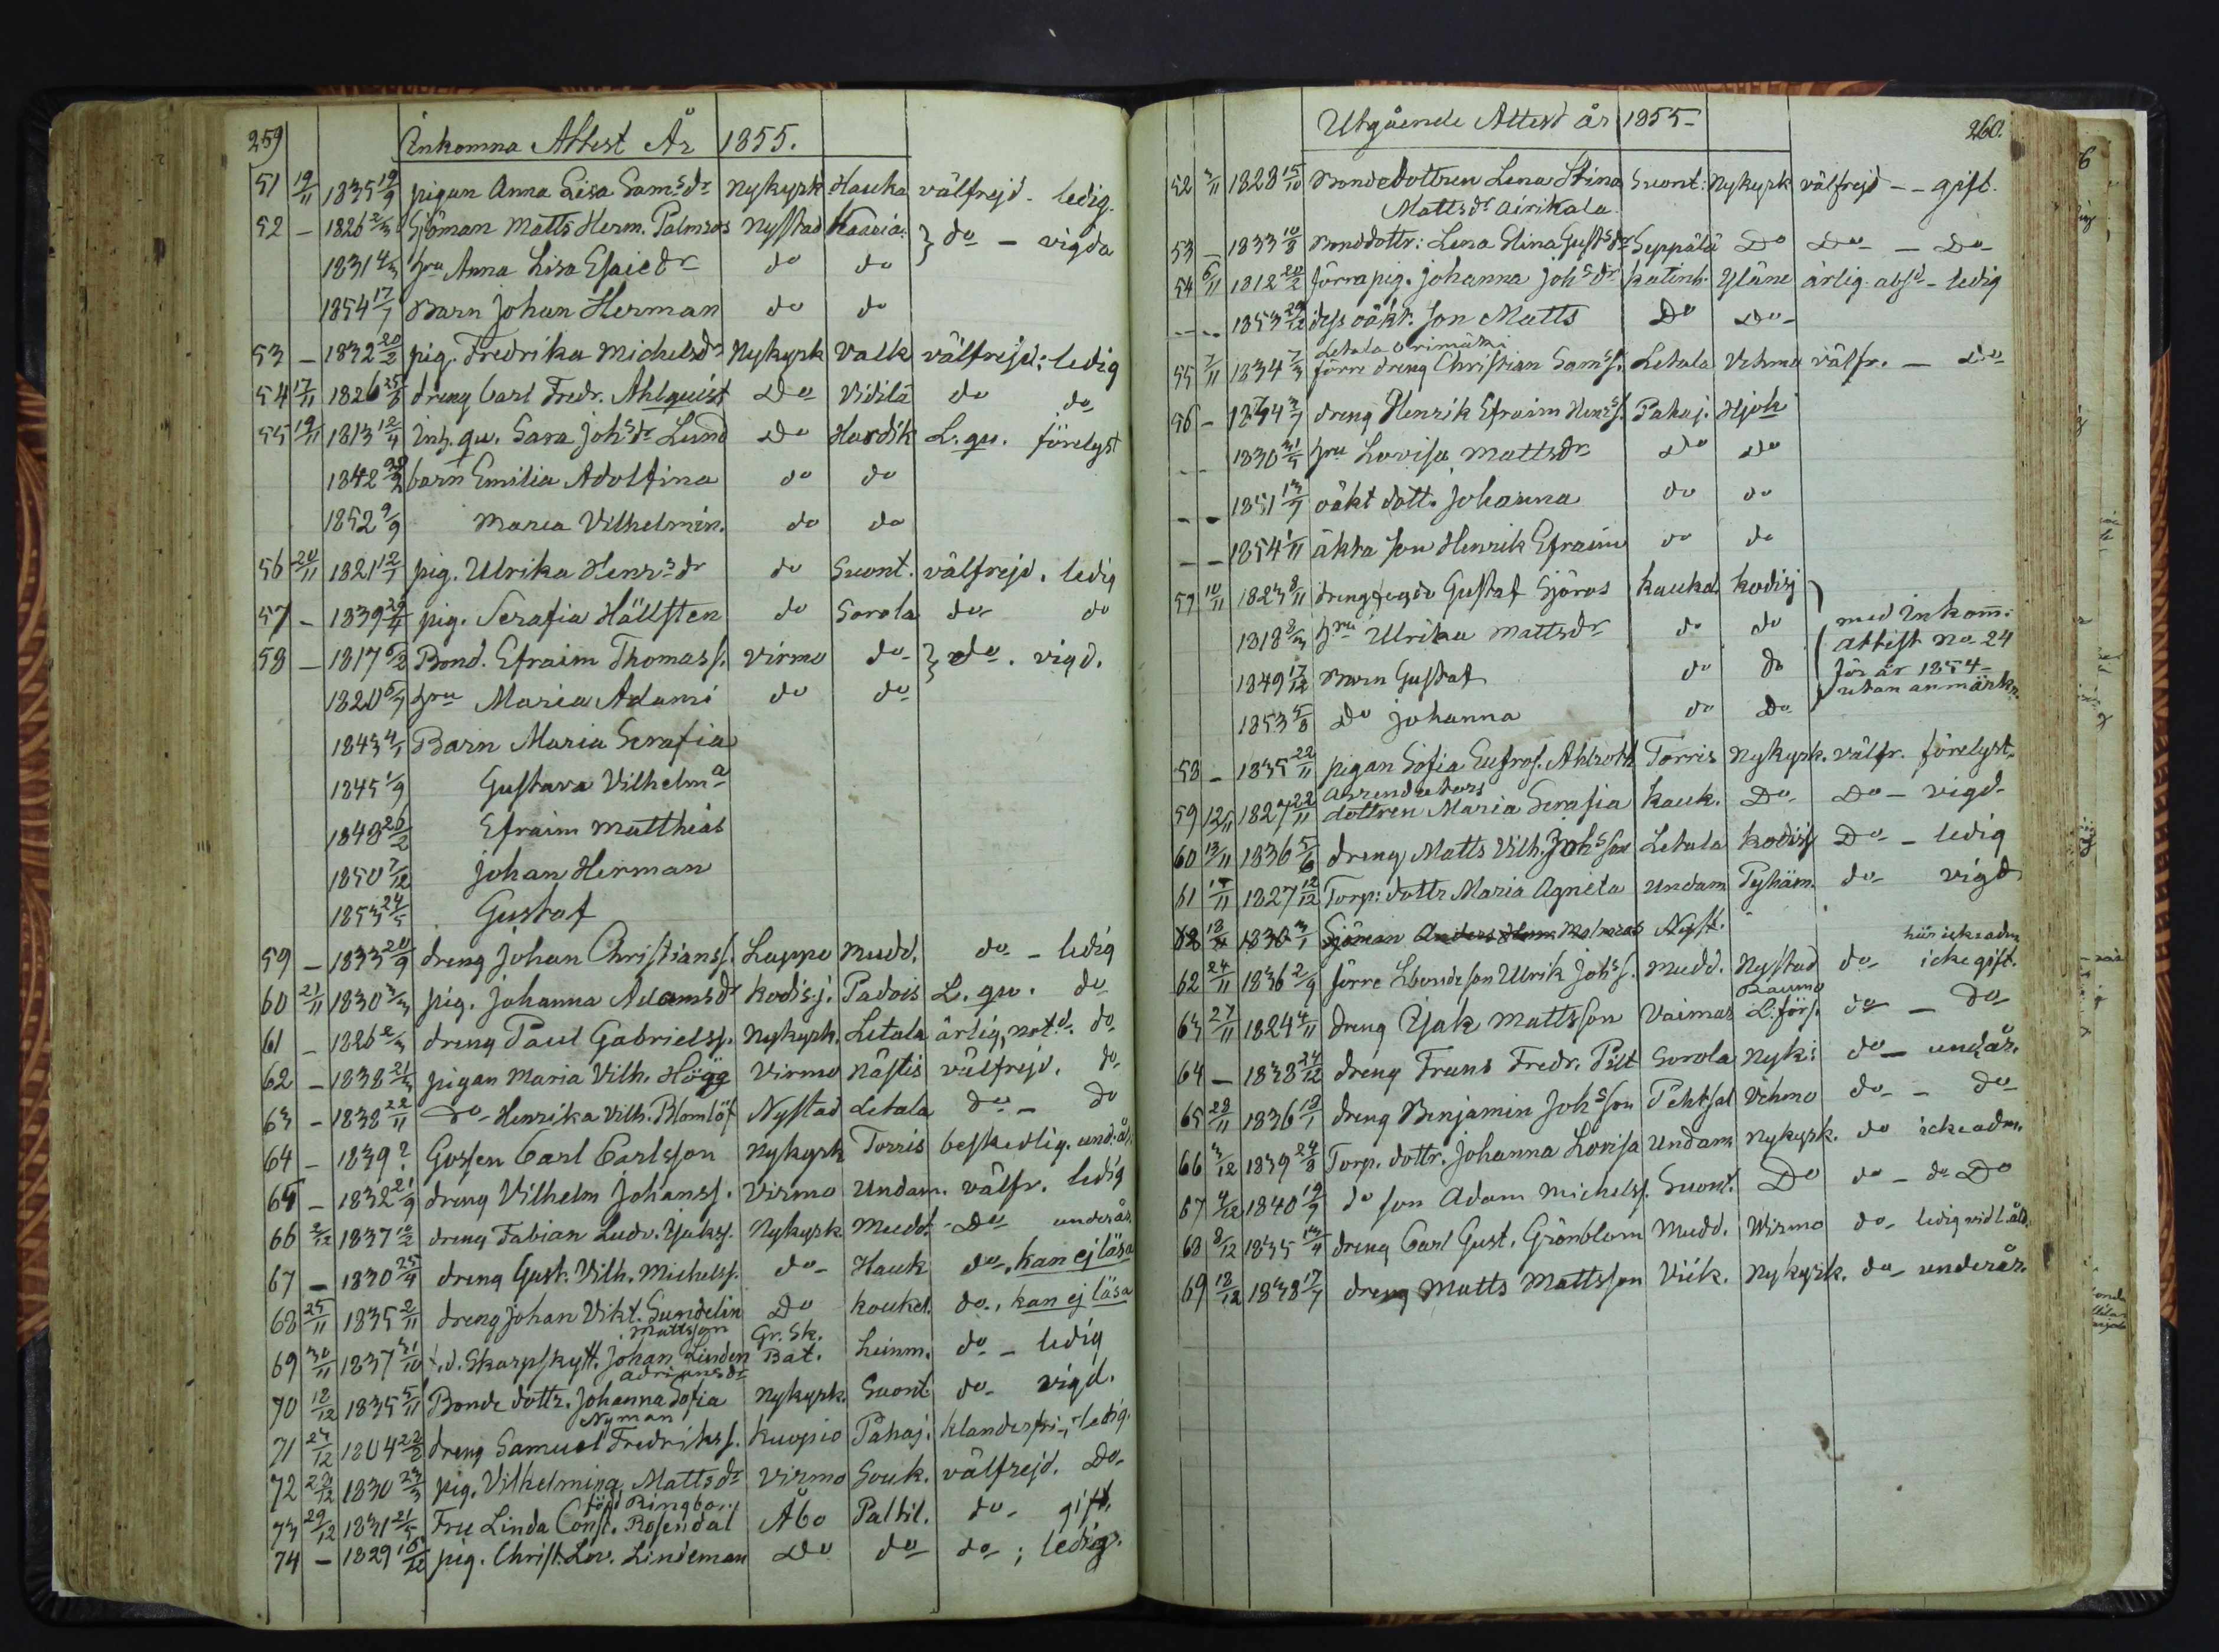 259
Ankomna Attest År 1855.
51 19/11 1835 19/9 pigan Anna Lisa Sams dr Nykyrk Hauka välfrejd - ledig.
52 — 1826 2/3 Sjöman Matts Herm. Palmros Nystad Kaaria: } do - vigda
1831 4/3 hru Anna Lisa Esaiedr do do
1854 17/7 Barn Johan Herman do do
53 — 1832 20/2 pig. Fredrika Michelsdr Nykyrk Valk välfrejd: ledig
54 17/11 1826 25/8 dreng Carl Fredr. Ahlquist Do Vidilä do do
55 19/11 1813 12/4 Inh. qu. Sara Johs dr Lund Do Hardik L. qu. förelyst
1842 barn Emilia Adolfina do do
1852 9/9 Maria Vilhelmin. do do
56 20/11 1821 12/7 pig. Ulrika Henrs dr do Suont. välfrejd. ledig
57 — 1839 29/4 pig. Serafia Hällsten do Sorola do do
58 — 1817 6/2 Bond. Efraim Thomass. Virmo do } do. vigd.
1820 6/7 hru Maria Adami do do
1843 4/1 Barn Maria Serafia
1845 1/9 Gustava Vilhelma
1848 26/2 Efraim Matthias
1850 7/12 Johan Herman
1853 24/5 Gustaf
59 — 1833 20/9 dreng Johan Christianss. Lappo Mudd. do - ledig
60 21/11 1830 3/3 pig. Johanna Adamsdr Kodisj. Padois L. qu. do
61 — 1826 2/3 dreng Paul Gabrielss. Nykyrk. Letala ärlig, notd. do
62 — 1838 21/3 pigan Maria Vilh. Högg Virmo Nästis välfrejd. do
63 — 1838 22/11 do Henrika Vilh. Blomlöf Nystad Letala do - do
64 — 1839? Gossen Carl Carlsson Nykyrk Torris beskedlig. und. år.
65 — 1832 21/9 dreng Vilhelm Johanss. Virmo Undam. välfr. ledig
66 2/12 1837 10/2 dreng Fabian Ludv. Isaks. Nykyrk Mudd. do underår.
67 — 1830 25/4 dreng Gust. Vilh. Michelss. do Hauk do, kan ej läsa
68 25/11 1835 2/11 dreng Johan Vikt. Sundelin Do Koukel. do., kan ej läsa
Mattsson Gr. Sk.
69 30/11 1837 31/10 f.d. Skarpskytt. Johan Linden Bat. Leinm. do - ledig
Adriansdr
70 18/12 1835 5/11 Bonde dottr. Johanna Sofia Nykyrk. Suont do vigd.
Nyman
71 24/12 1804 22/2 dreng Samuel Fredrikss. Kuopio Pahaj. klanderfri, ledig.
72 22/12 1830 23/3 pig. Vilhelmina Mattsdr Virmo Souk. välfrejd. Do
född Ringbom
73 29/12 1831 21/5 Fru Linda Const. Rosendal Åbo Paltil. do gift.
74 — 1829 16/12 pig. Christ. Lov. Lindeman Do do do; ledig.
Utgående Attest år 1855-
260.
52 3/11 1828 15/10 Bondedottren Lena Stina Suont: Nykyrk välfrejd - - gift.
Mattsdr Airikala
53 — 1833 10/8 Bonddottr: Lena Stina Gusts dr Seppälä Do Do - Do
54 6/11 1812 20/2 förra pig. Johanna Johs dr Katinh. Yläne ärlig. absd - ledig
1853 29/12 dess oäkt. son Matts Do Do
Letala Orimäki
55 7/11 1834 7/3 förre dreng Christian Sams s. Letala Vehmo välfr. - do
56 — dreng Henrik Efraim Henrs s. Pahaj. Hjok
1830 31/5 hru Lovisa Mattsdr do do
1851 13/7 oäkt dott. Johanna do do
1854 1/11 äkta son Henrik Efraim do do
57 10/11 1823 8/11 dreng Gustaf Sjöros Kauka. Kodisj
1818 8/3 hru Ulrika Mattsdr do do
1849 17/12 Barn Gustaf do do
1853 5/8 Do Johanna do Do
med Inkom:
attest No 24
för år 1854-
utan anmärkn.
58 — 1835 22/11 pigan Sofia Eufros. Ahlroth Torris Nykyrk. välfr. förelyst
Arrendators
59 12/11 1827 22/11 dottren Maria Serafia Kauk. Do Do - vigd
60 13/11 1836 5/6 dreng Matts Vilh. Johs son Letala Kodisj Do - ledig
61 17/11 1827 12/12 Torp: dottr Maria Agneta Undam Pyhäm. do vigd
Sjöman Anders Nyst.
här icke adm
62 24/11 1836 2/9 förre Lbonde son Ulrik Johs s. Mudd. Nystad do icke gift.
Raumo
63 27/11 1824 4/11 dreng Isak Mattsson Vaimar L. förs. do - do
64 — 1838 24/12 dreng Frans Fredr. Pilt Sorola Nyk: do - und.år.
65 28/11 1836 18/1 dreng Benjamin Johs son Pehtsal Vehmo do - do
66 3/12 1839 24/8 Torp. dottr. Johanna Lovisa Undam Nykyrk. do icke adm.
67 4/12 1840 19/9 do son Adam Michelss. Suont. Do do - do Do
68 8/12 1835 13/4 dreng Carl Gust. Grönblom Mudd. Wirmo do ledig vid l. åld.
69 18/12 1838 17/7 dreng Matts Mattsson Viik. Nykyrk. do underår.